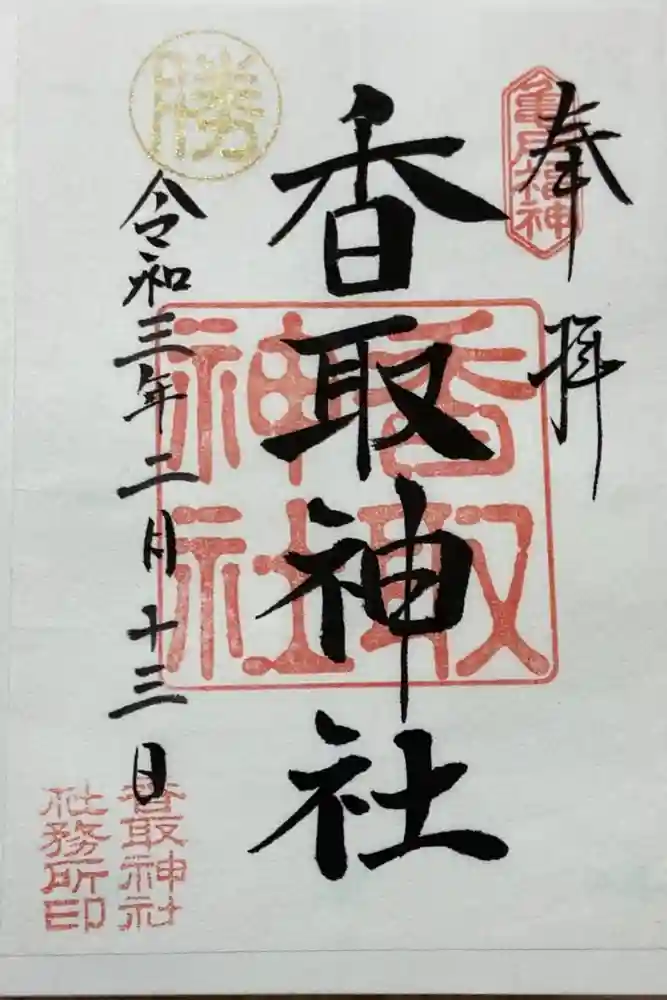 奉拝
亀戸福神
香取神社
香取
神社
勝
令和三年二月十三日
香取神社
社務所印